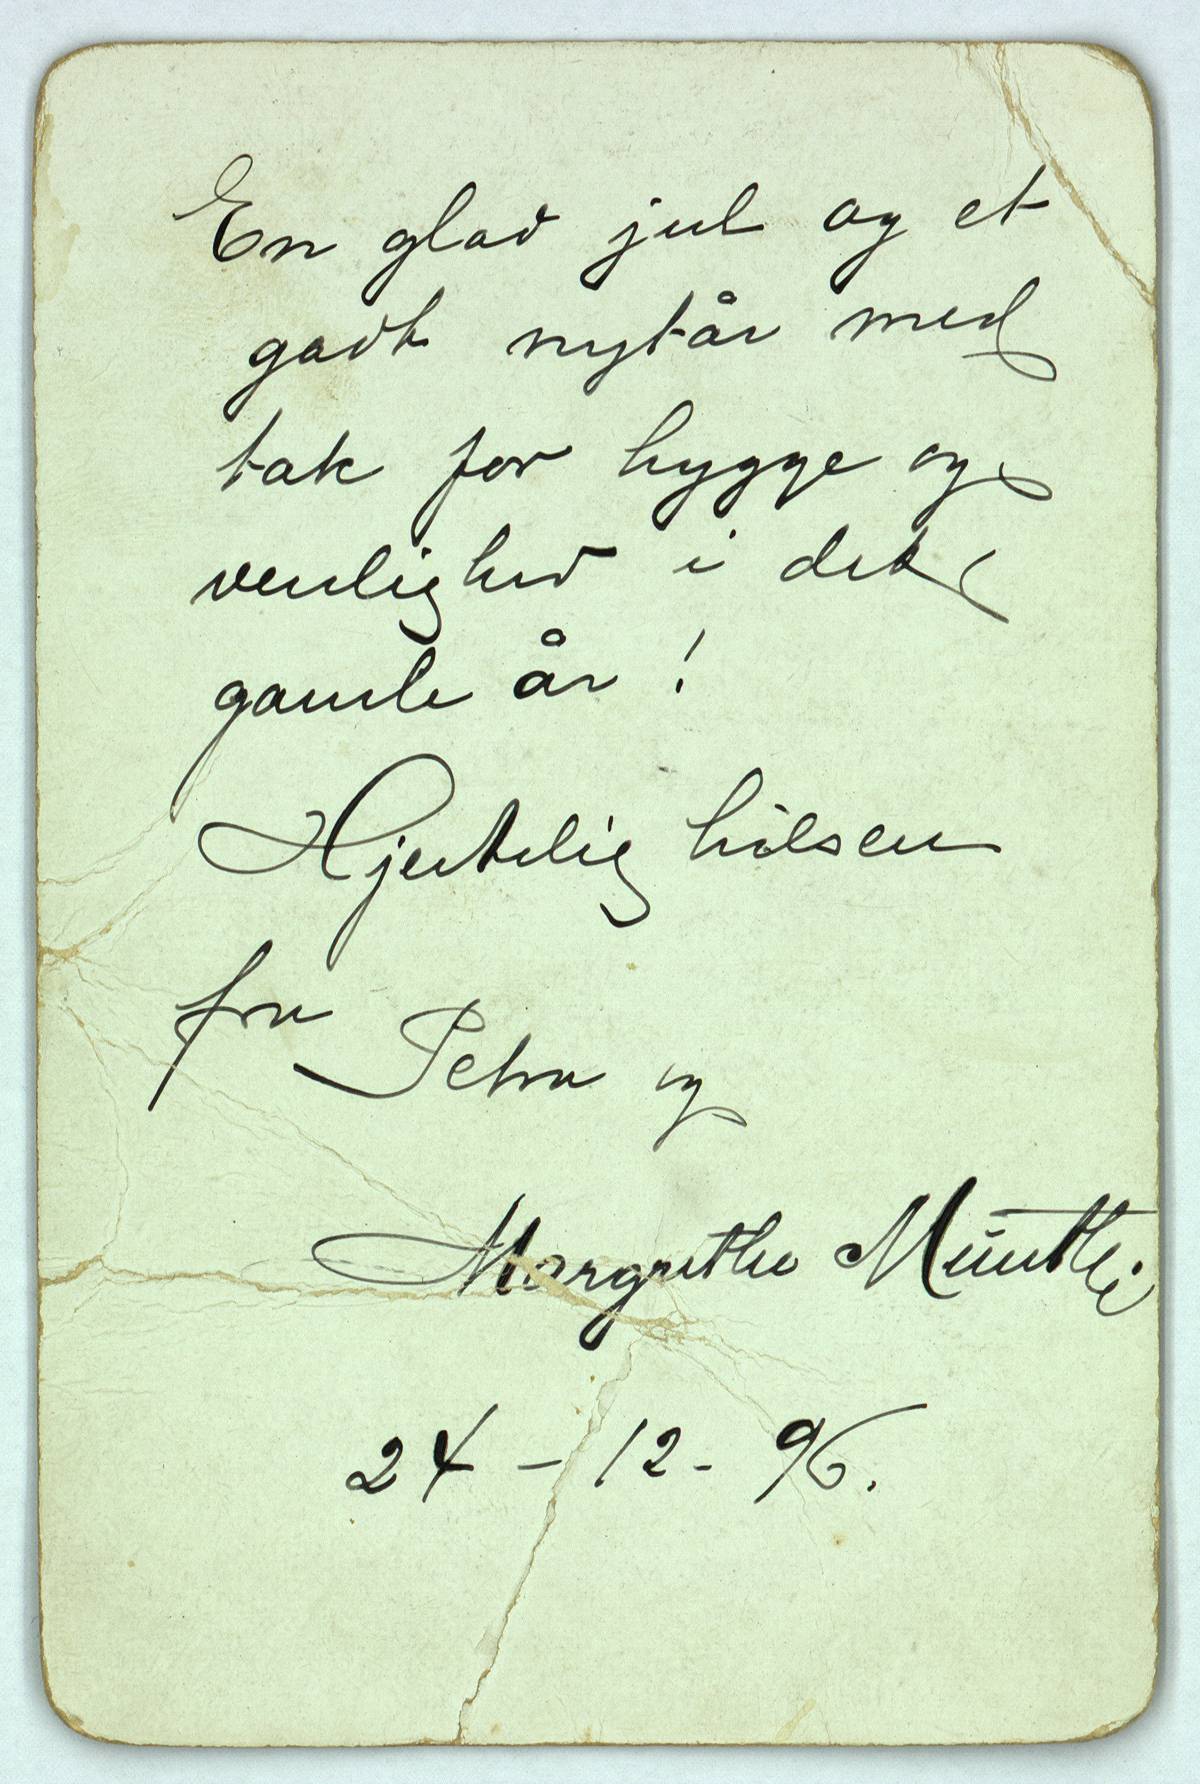 En glad jul og et
godt nytår med
tak for hygge og
venlighed i det
gamle år!
Hjertelig hilsen
fra
Petra og
Margrethe Münthe
24 - 12 - 96.